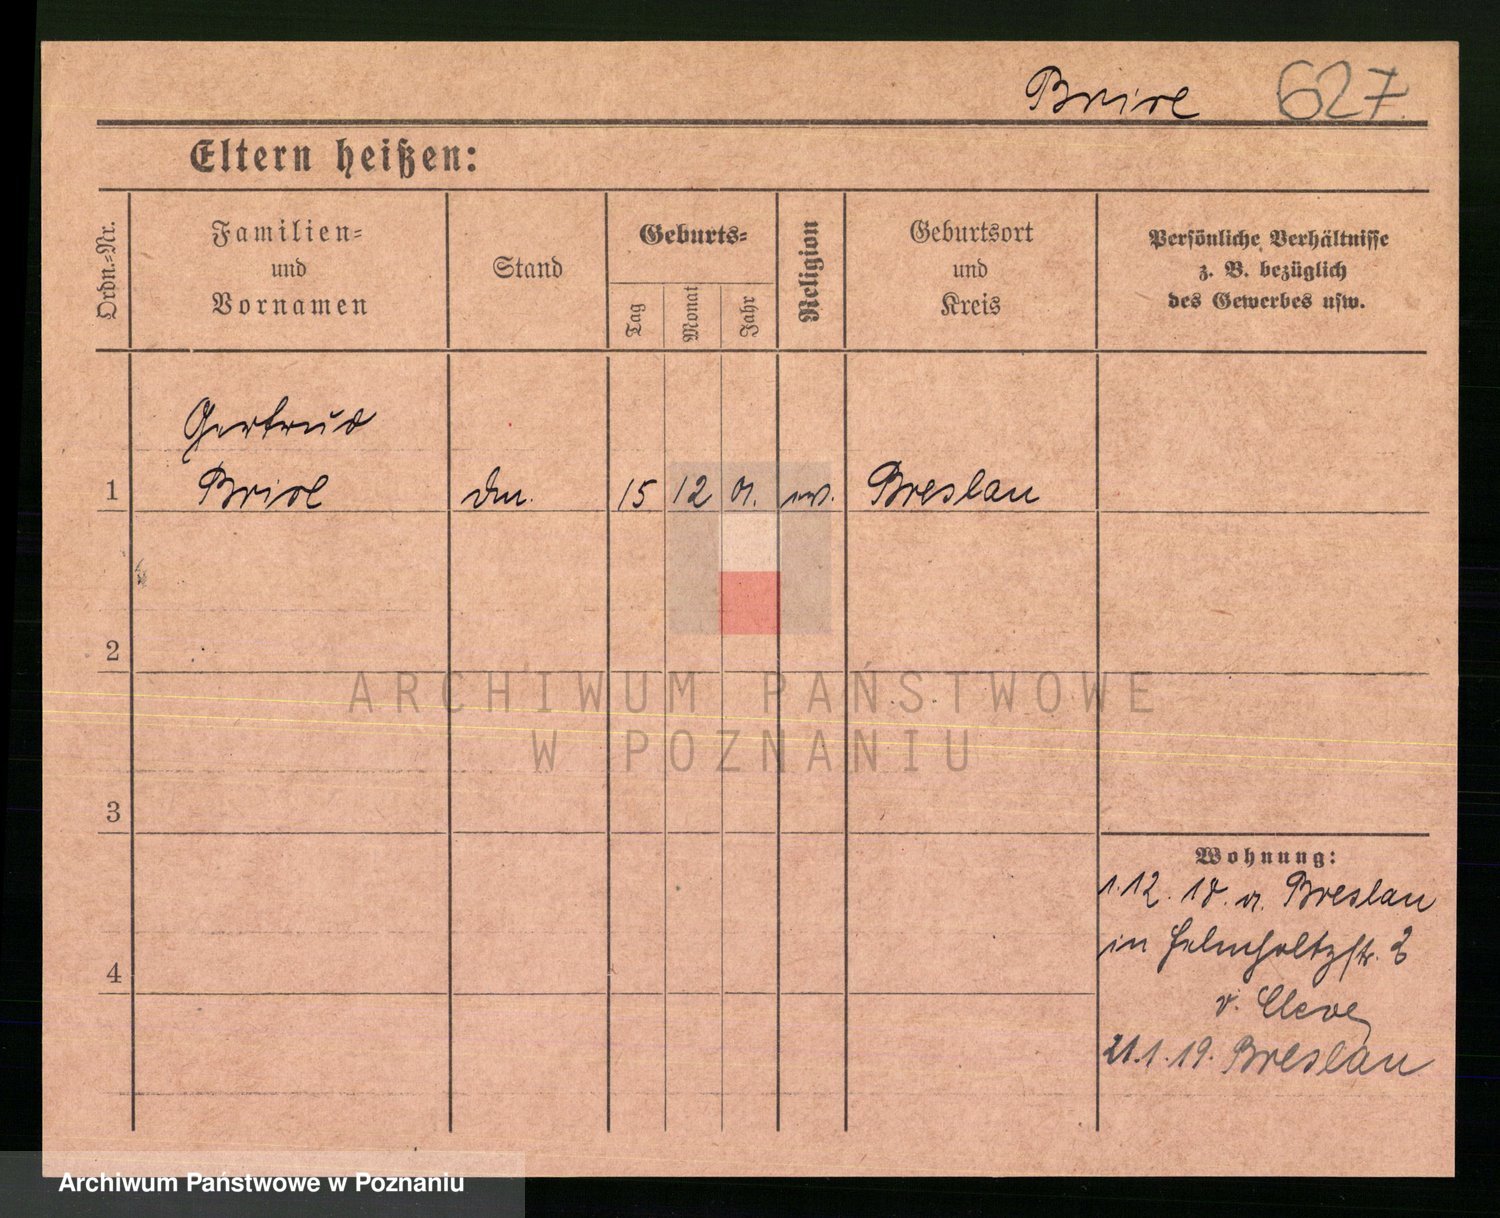 627
Eltern heißen:
Ordn.=Nr.
Familien=
und
Vornamen
Stand
Geburts=
Tag
Monat
Jahr
Religion
Geburtsort
und
Kreis
Persönliche Verhältnisse
z. B. bezüglich
des Gewerbes usw.
Gertrud
1
15 12 01. ev. Breslau
2
ARCHIWUM PAŃSTWOWE
W POZNANIU
3
Wohnung:
1.12.18. Breslau
in Helmholtzstr.
4
v. Cleve
21.1.19. Breslau
Archiwum Państwowe w Poznaniu